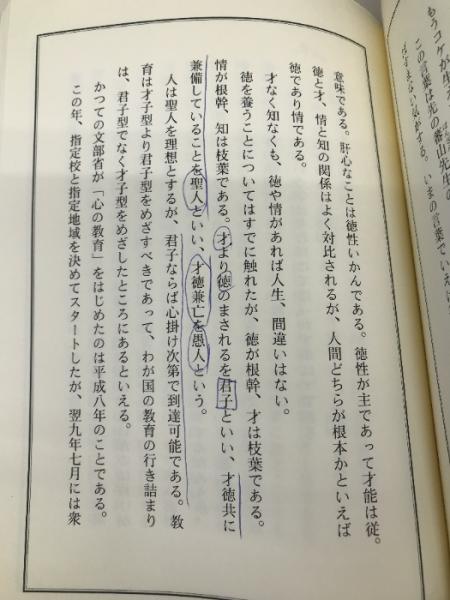 もうコケが生え
この言葉は光の
意味である。肝心なことは徳性いかんである。徳性が主であって才能は従。
徳と才、情と知の関係はよく対比されるが、人間どちらが根本かといえば
徳であり情である。
才なく知なくも、徳や情があれば人生、間違いはない。
徳を養うことについてはすでに触れたが、徳が根幹、才は枝葉である。
情が根幹、知は枝葉である。才より徳のまされるを君子といい、才徳共に
兼備していることを聖人といい、才徳兼亡を愚人という。
人は聖人を理想とするが、君子ならば心掛け次第で到達可能である。教
育は才子型より君子型をめざすべきであって、わが国の教育の行き詰まり
は、君子型でなく才子型をめざしたところにあるといえる。
かつての文部省が「心の教育」をはじめたのは平成八年のことである。
この年、指定校と指定地域を決めてスタートしたが、翌九年七月には衆